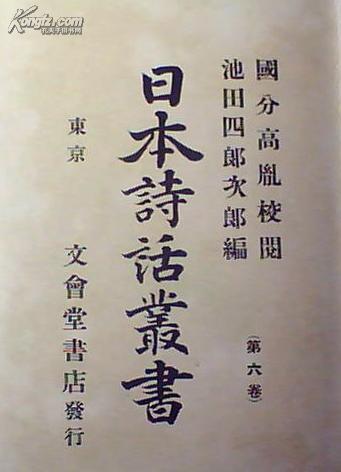 Kongfz.com
孔夫子旧书网
國分高胤校閱
池田四郎次郎編
日本詩話叢書
(第六卷)
東京
文會堂書店發行